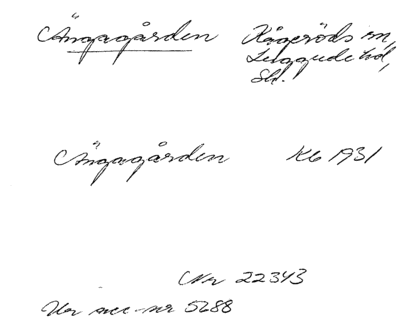 Ängagården Kågeröds sn,
Luggude hd,
Sk.
Ängagården Kb 1931
Nr 22343
Ur acc-nr 5288